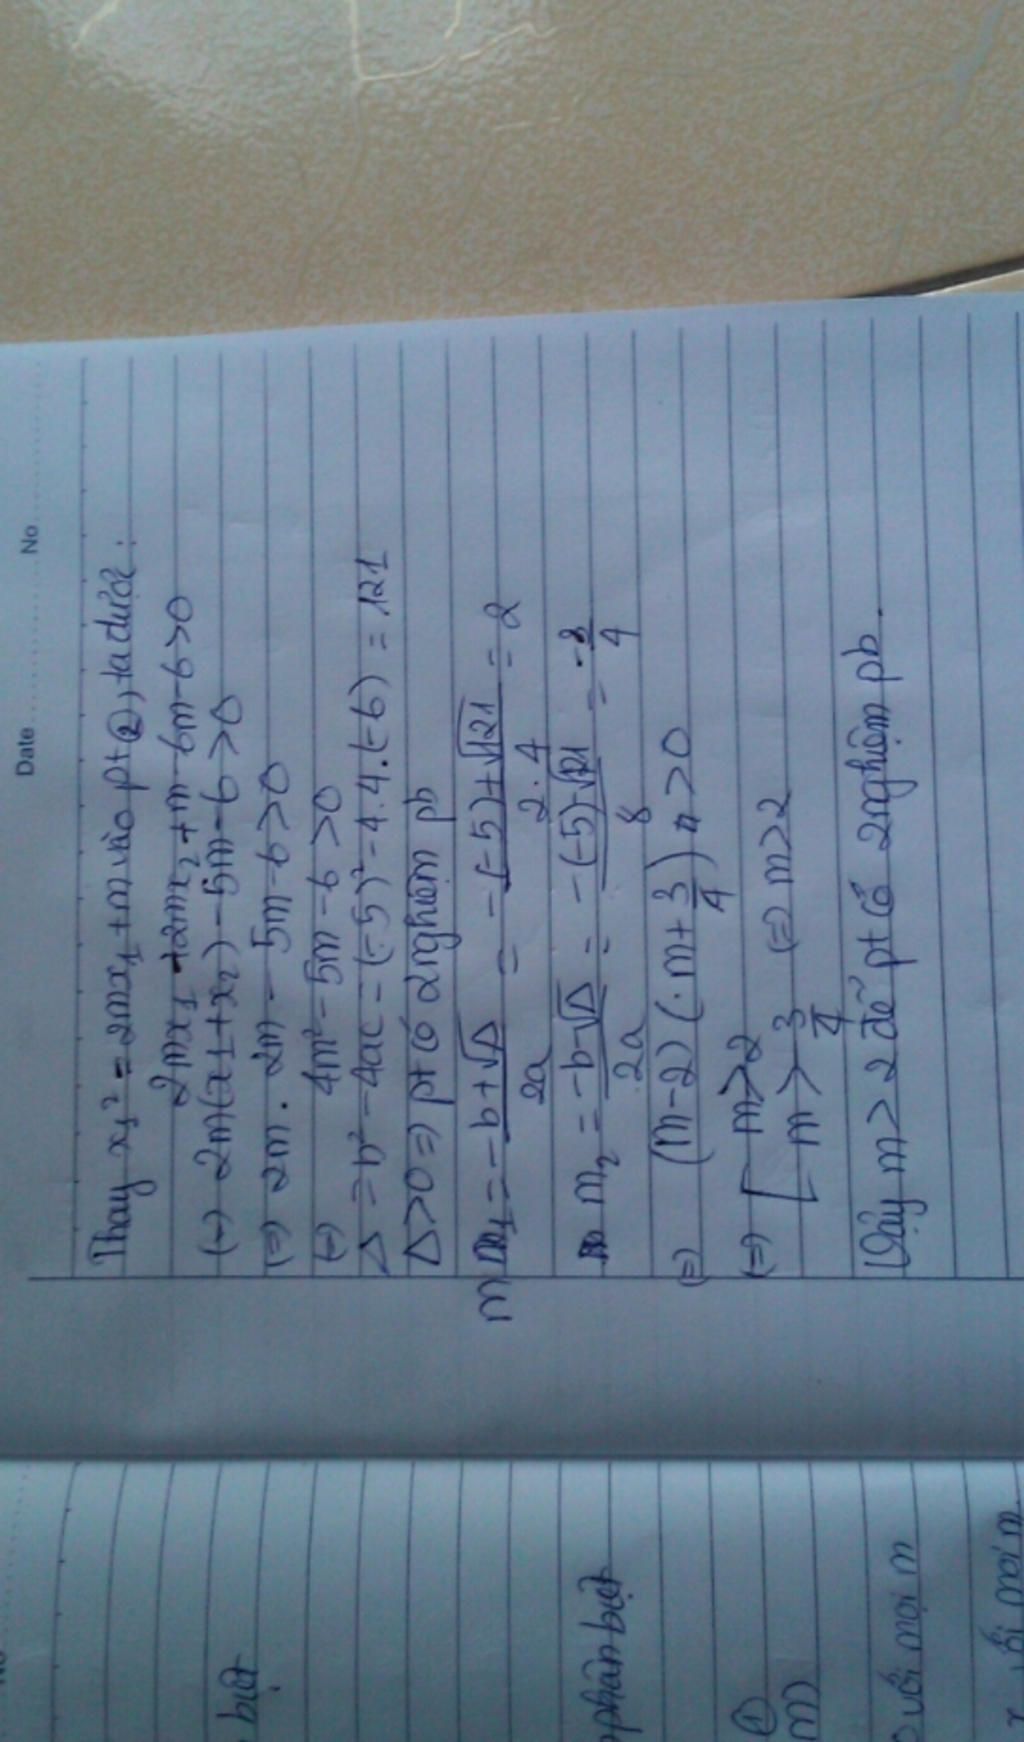 Date No
Thay x₁² = 2mx₁ + m vào pt ②, ta được:
2mx₁ + 2mx₂ + m - 6m - 6 > 0
(=) 2m(x₁ + x₂) - 5m - 6 > 0
(=) 2m . 2m - 5m - 6 > 0
(=) 4m² - 5m - 6 > 0
Δ = b² - 4ac = (-5)² - 4.4.(-6) = 121
Δ > 0 => pt có 2 nghiệm pb
m₁ = -b + √Δ / 2a = -(-5) + √121 / 2.4 = 2
m₂ = -b √Δ / 2a = -(-5) √121 / 8 = -3/4
(=) (m - 2) (. m + 3/4) > 0
(=) [ m > 2
m > 3/4 (=) m > 2
Vậy m > 2 để pt có 2 nghiệm pb.
biệt
phân biệt
①
m)
với mọi m
mọi m